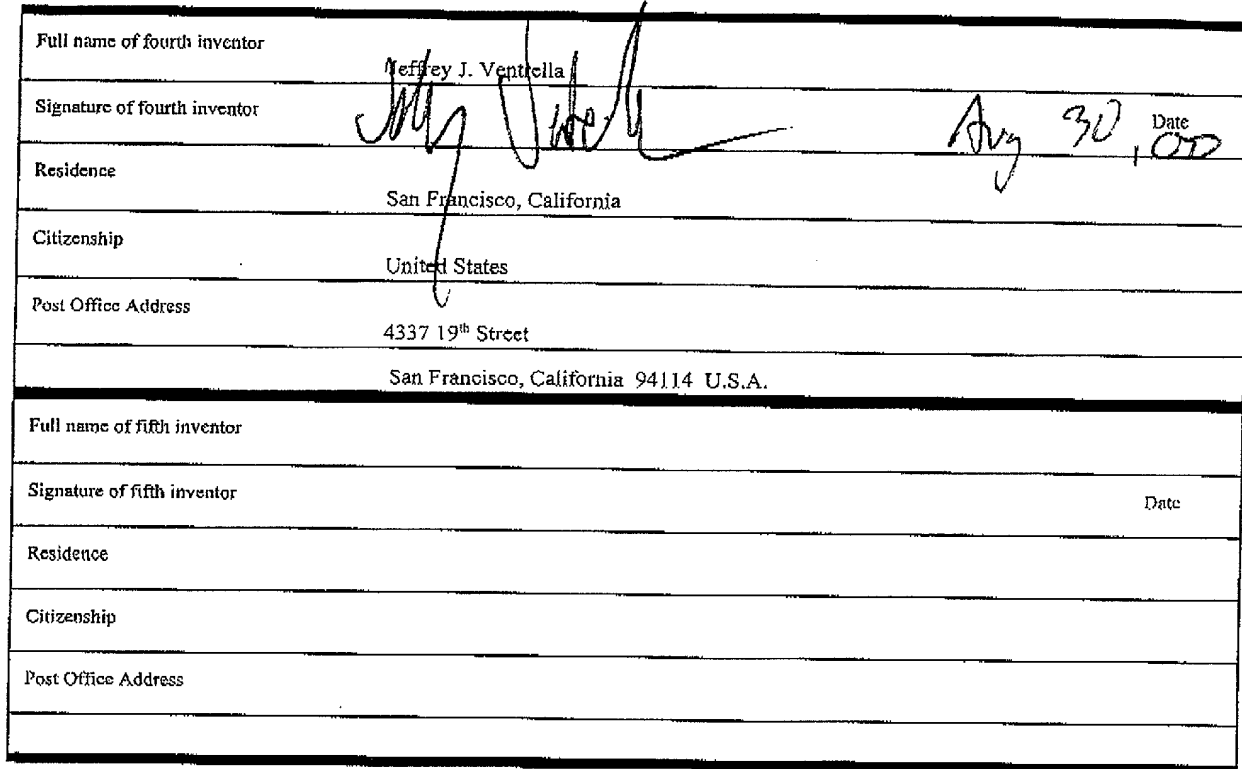 Full name of fourth inventor
Jeffrey J. Ventrella
Signature of fourth inventor
Aug 30, 00 Date
Residence
San Francisco, California
Citizenship
United States
Post Office Address
4337 19th Street
San Francisco, California 94114 U.S.A.
Full name of fifth inventor
Signature of fifth inventor Date
Residence
Citizenship
Post Office Address